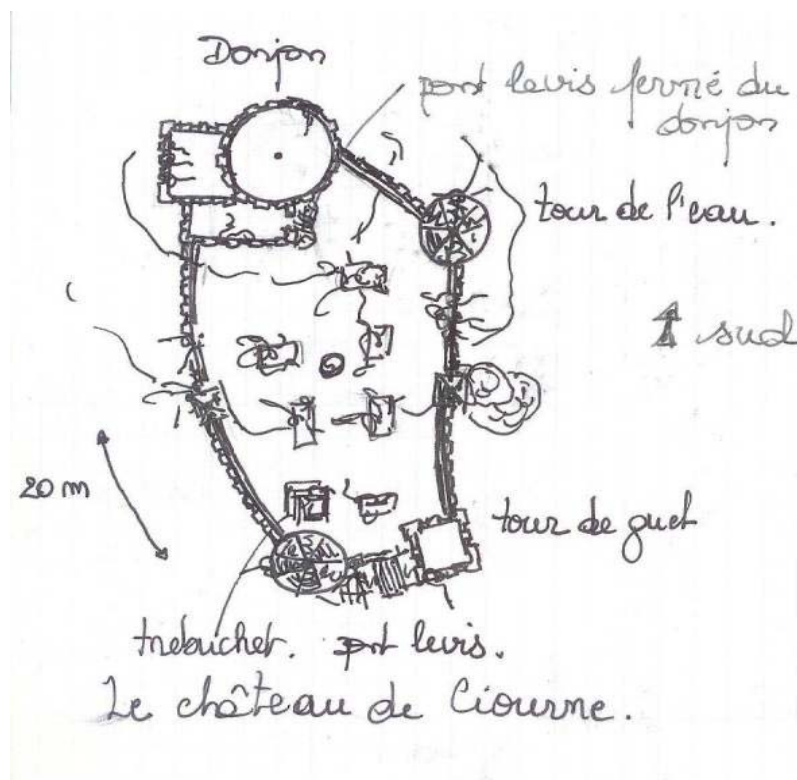 Donjon
pont levis fermé du
donjon
tour de l'eau.
sud
20 m
tour de guet
trebuchet. pont levis.
Le château de Ciourne.